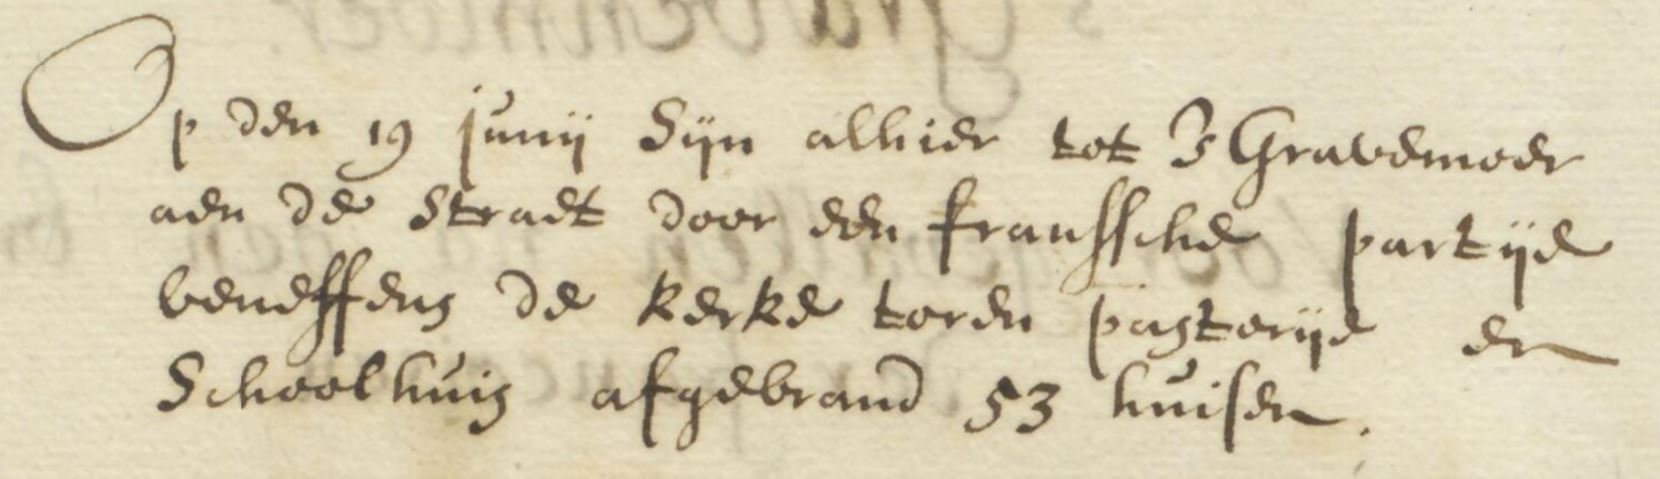 Op den 19 junij Sijn alhier tot S Gravemoer
aen de Straet door een franssche partije
beneffens de kerke toren pastorije en
Schoolhuis afgebrand 53 huisen.